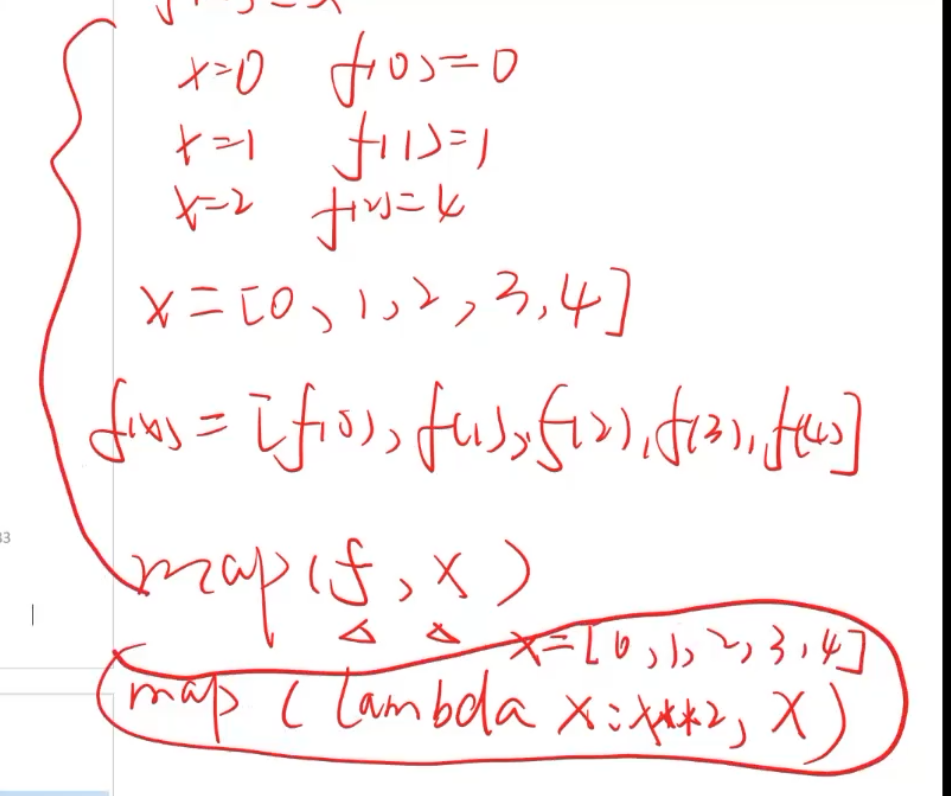 x=0 f(0)=0
x=1 f(1)=1
x=2 f(2)=4
x=[0,1,2,3,4]
f(x)=[f(0),f(1),f(2),f(3),f(4)]
map(f,x)
x=[0,1,2,3,4]
map(lambda x:x**2,x)